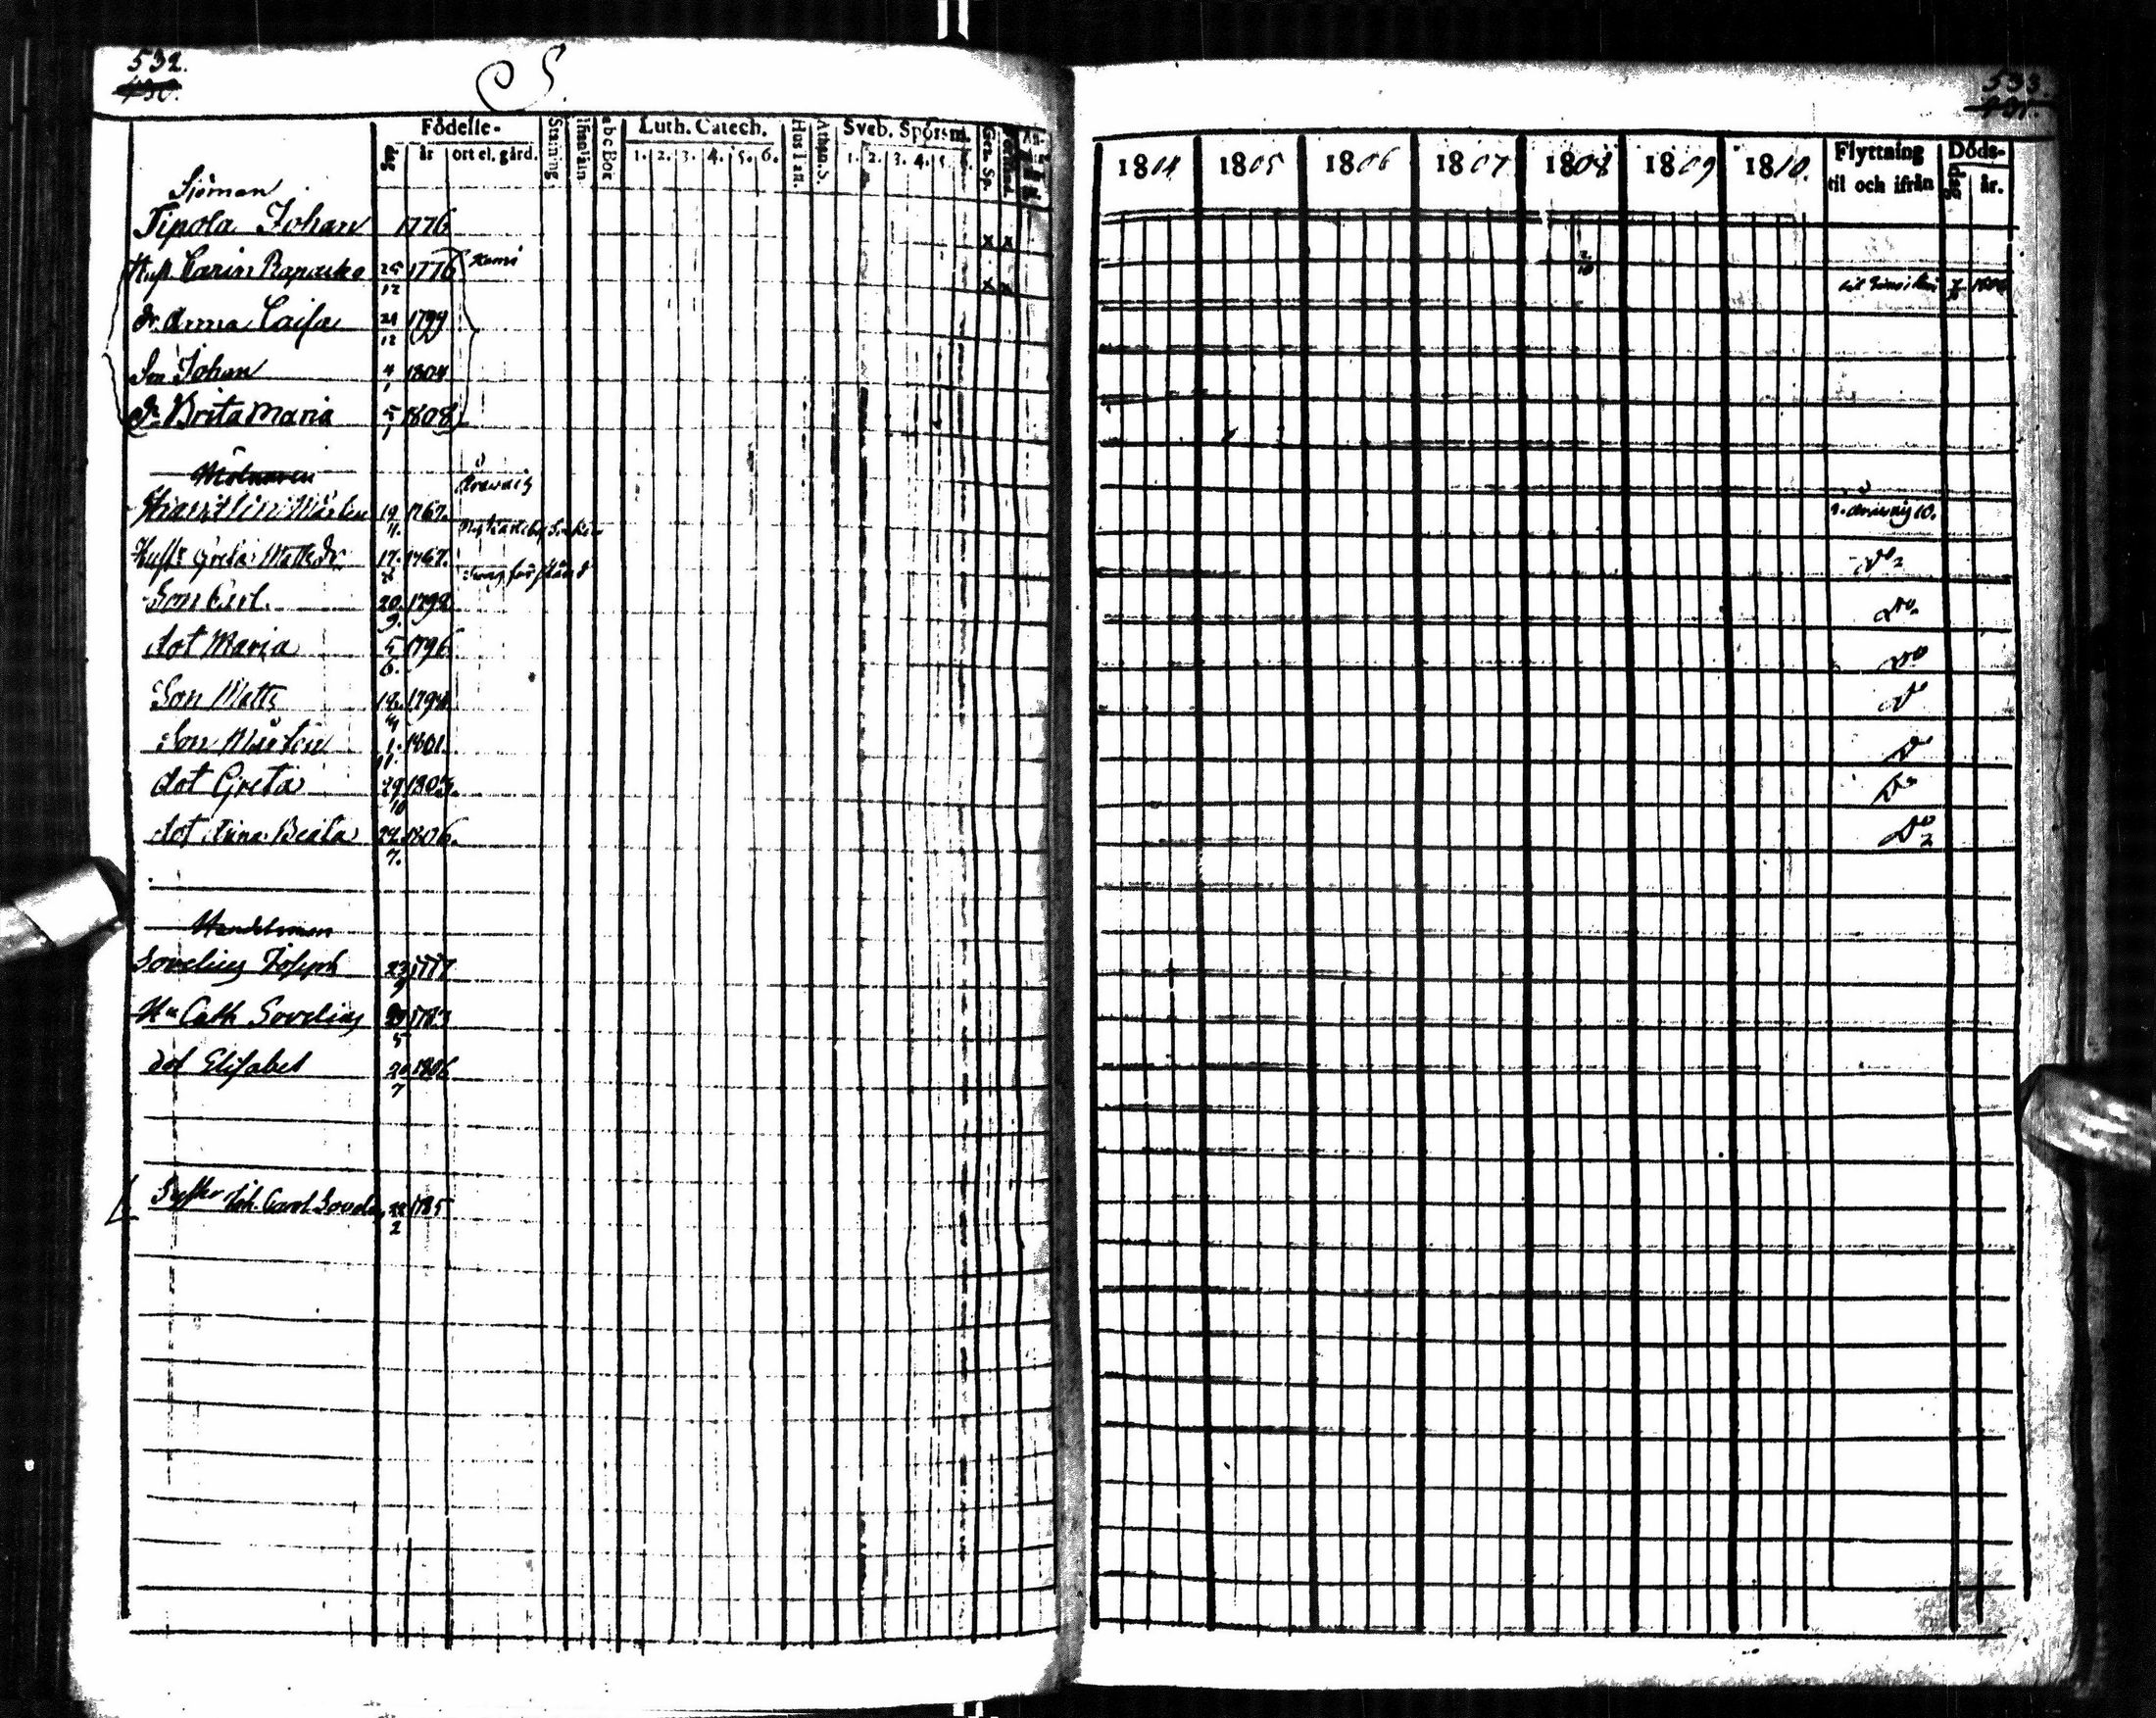 532.
430.
S.
Födelse-
dag
år
ort el. gård.
abc Bok
Luth. Catech.
1. 2. 3. 4. 5. 6.
Hus Taff.
Athan. S.
Sveb. Spörsm.
1. 2. 3. 4. 5.
Gen. Sp.
Sjöman
Tipola Johan 1776 x x
Hust. Carin Rapaska 25/12 1776 Kemi x x
Dr Anna Caisa 21/12 1799
Son Johan 4/1 1804
Dr Brita Maria 5/1 1808
Mölnaren
Mårten 19/11. 1767.
Hustr Greta Matts dr 17. 1767. svag förstånd
Son Carl. 20./9. 1792
dot Maria 5/6. 1796
Son Matts 1794
Son Mårten 1./11. 1801.
dot Greta 29/10 1803.
dot Anna Beata 22/7. 1806.
Handelsman
Sovelius Joseph 23/9 1777
Hu Cath Sovelius 5 1783
dot Elisabet 20/7 1806
Syster Joh. Carol. Sovelius 22/2 1785
533.
431.
1804 1805 1806 1807 1808 1809 1810.
Flyttning
til och ifrån
Döds-
dag
år.
Do
Do
Do
Do
Do
Do
Do